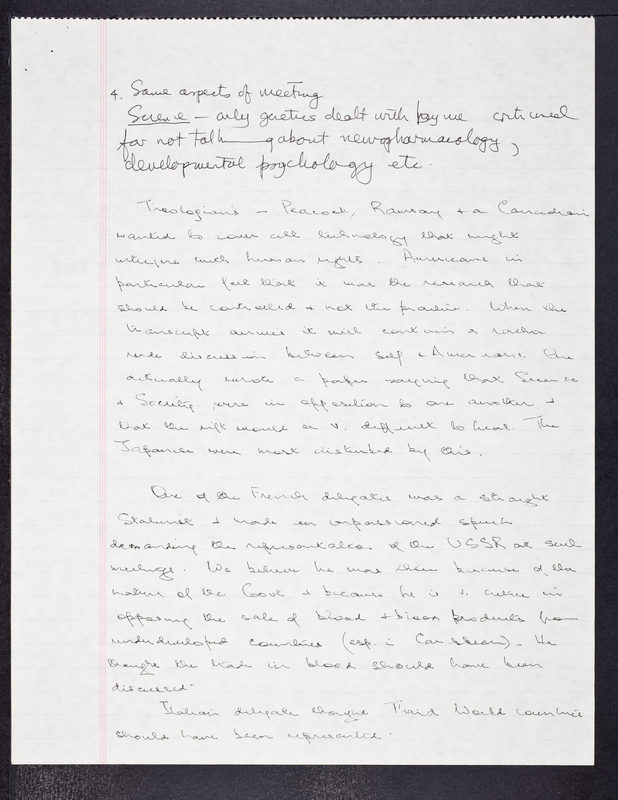 4. Some aspects of meeting
Science – only genetics dealt with by me criticised
for not talking about neuropharmacology,
developmental psychology etc.
Theologians – Peacock, Ramsay + a Canadian
wanted to cover all technology that might
interfere with human rights. Americans in
particular felt that it was the research that
should be controlled + not the practice. When the
transcript arrives it will contain a rather
rude discussion between self + Americans. One
actually wrote a paper saying that Science
+ Society were in opposition to one another +
that the rift would be v. difficult to heal. The
Japanese were most disturbed by this.
One of the French delegates was a straight
Stalinist + made an impassioned speech
demanding the representation of the USSR at such
meetings. We believe he was there because of the
nature of the Govt + because he is v. active in
opposing the sale of blood + blood products from
underdeveloped countries (esp. in Caribbean). He
thought the trade in blood should have been
discussed.
Italian delegate thought Third World countries
should have been represented.